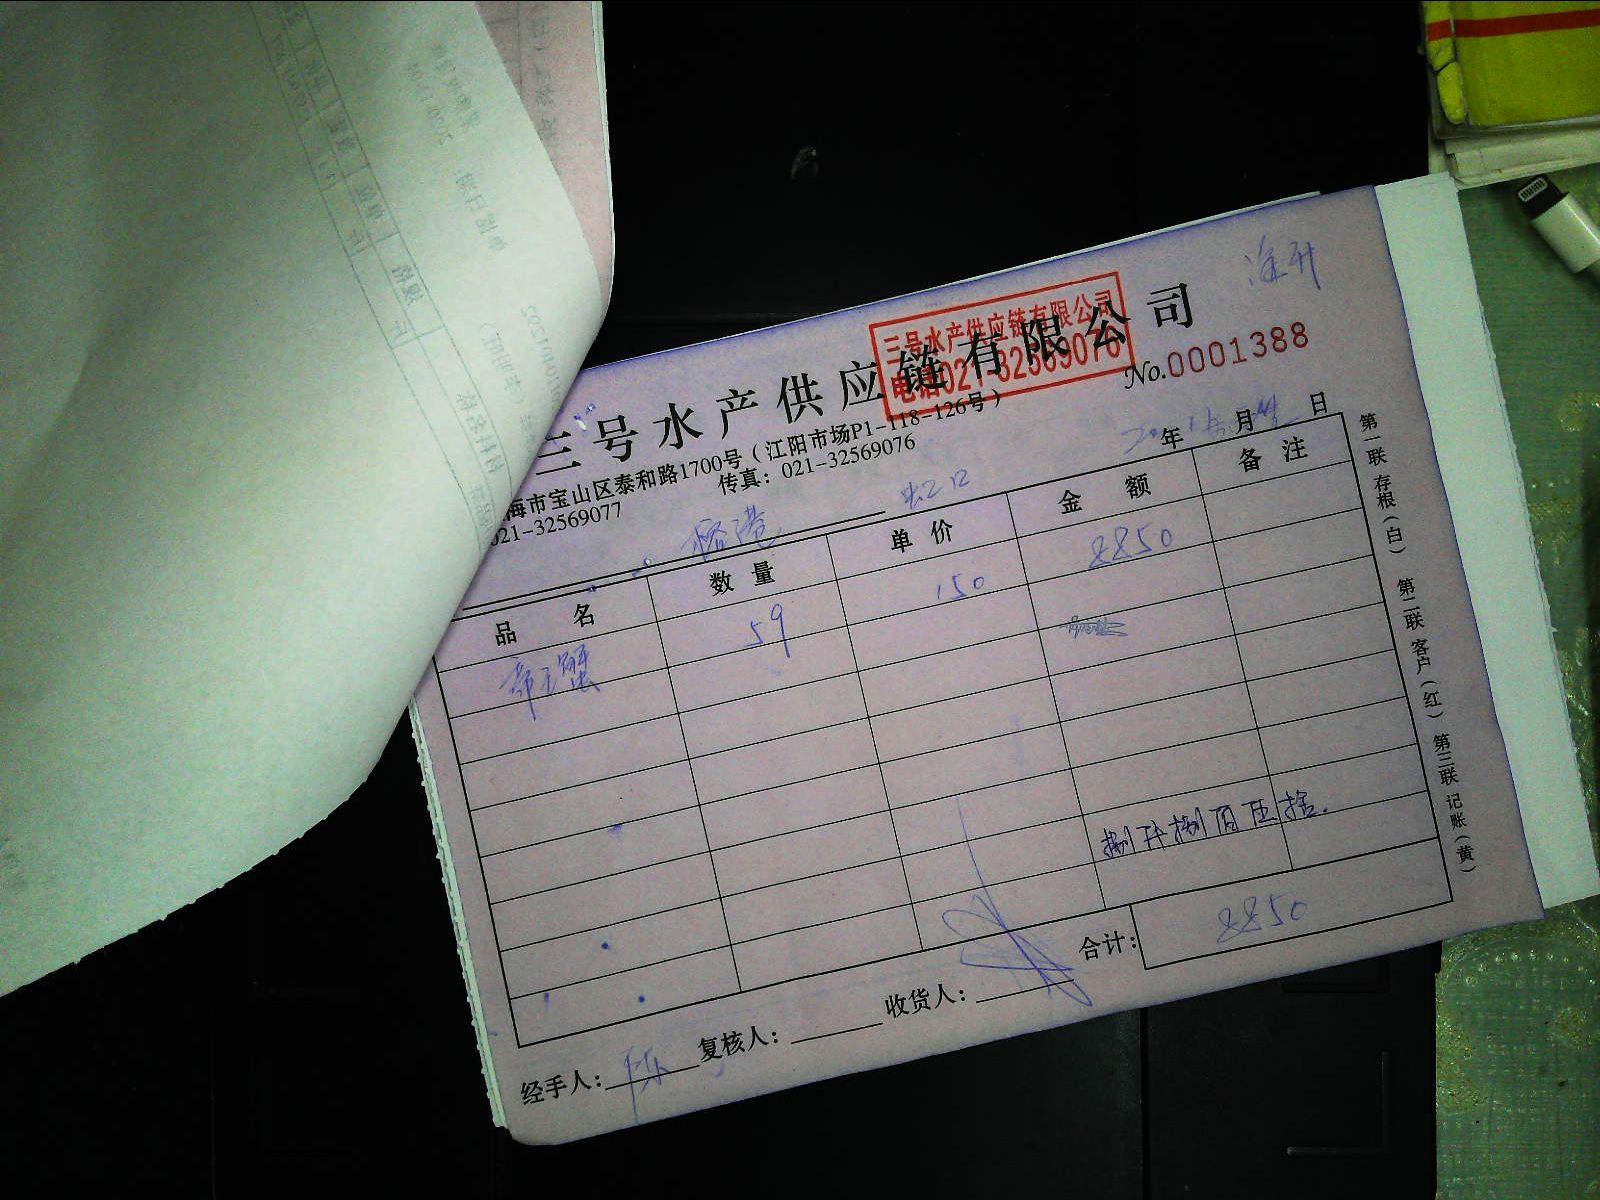 三号水产供应链有限公司
三号水产供应链有限公司
电话021-32569076
No.0001388
海市宝山区泰和路1700号(江阳市场P1-118-126号)
021-32569077 传真：021-32569076
年 月 日
虹口
品名 数量 单价 金额 备注
帝王蟹 59 150 8850
捌仟捌佰伍拾.
合计： 8850
经手人： 陈 复核人： 收货人：
第一联 存根(白) 第二联 客户(红) 第三联 记账(黄)